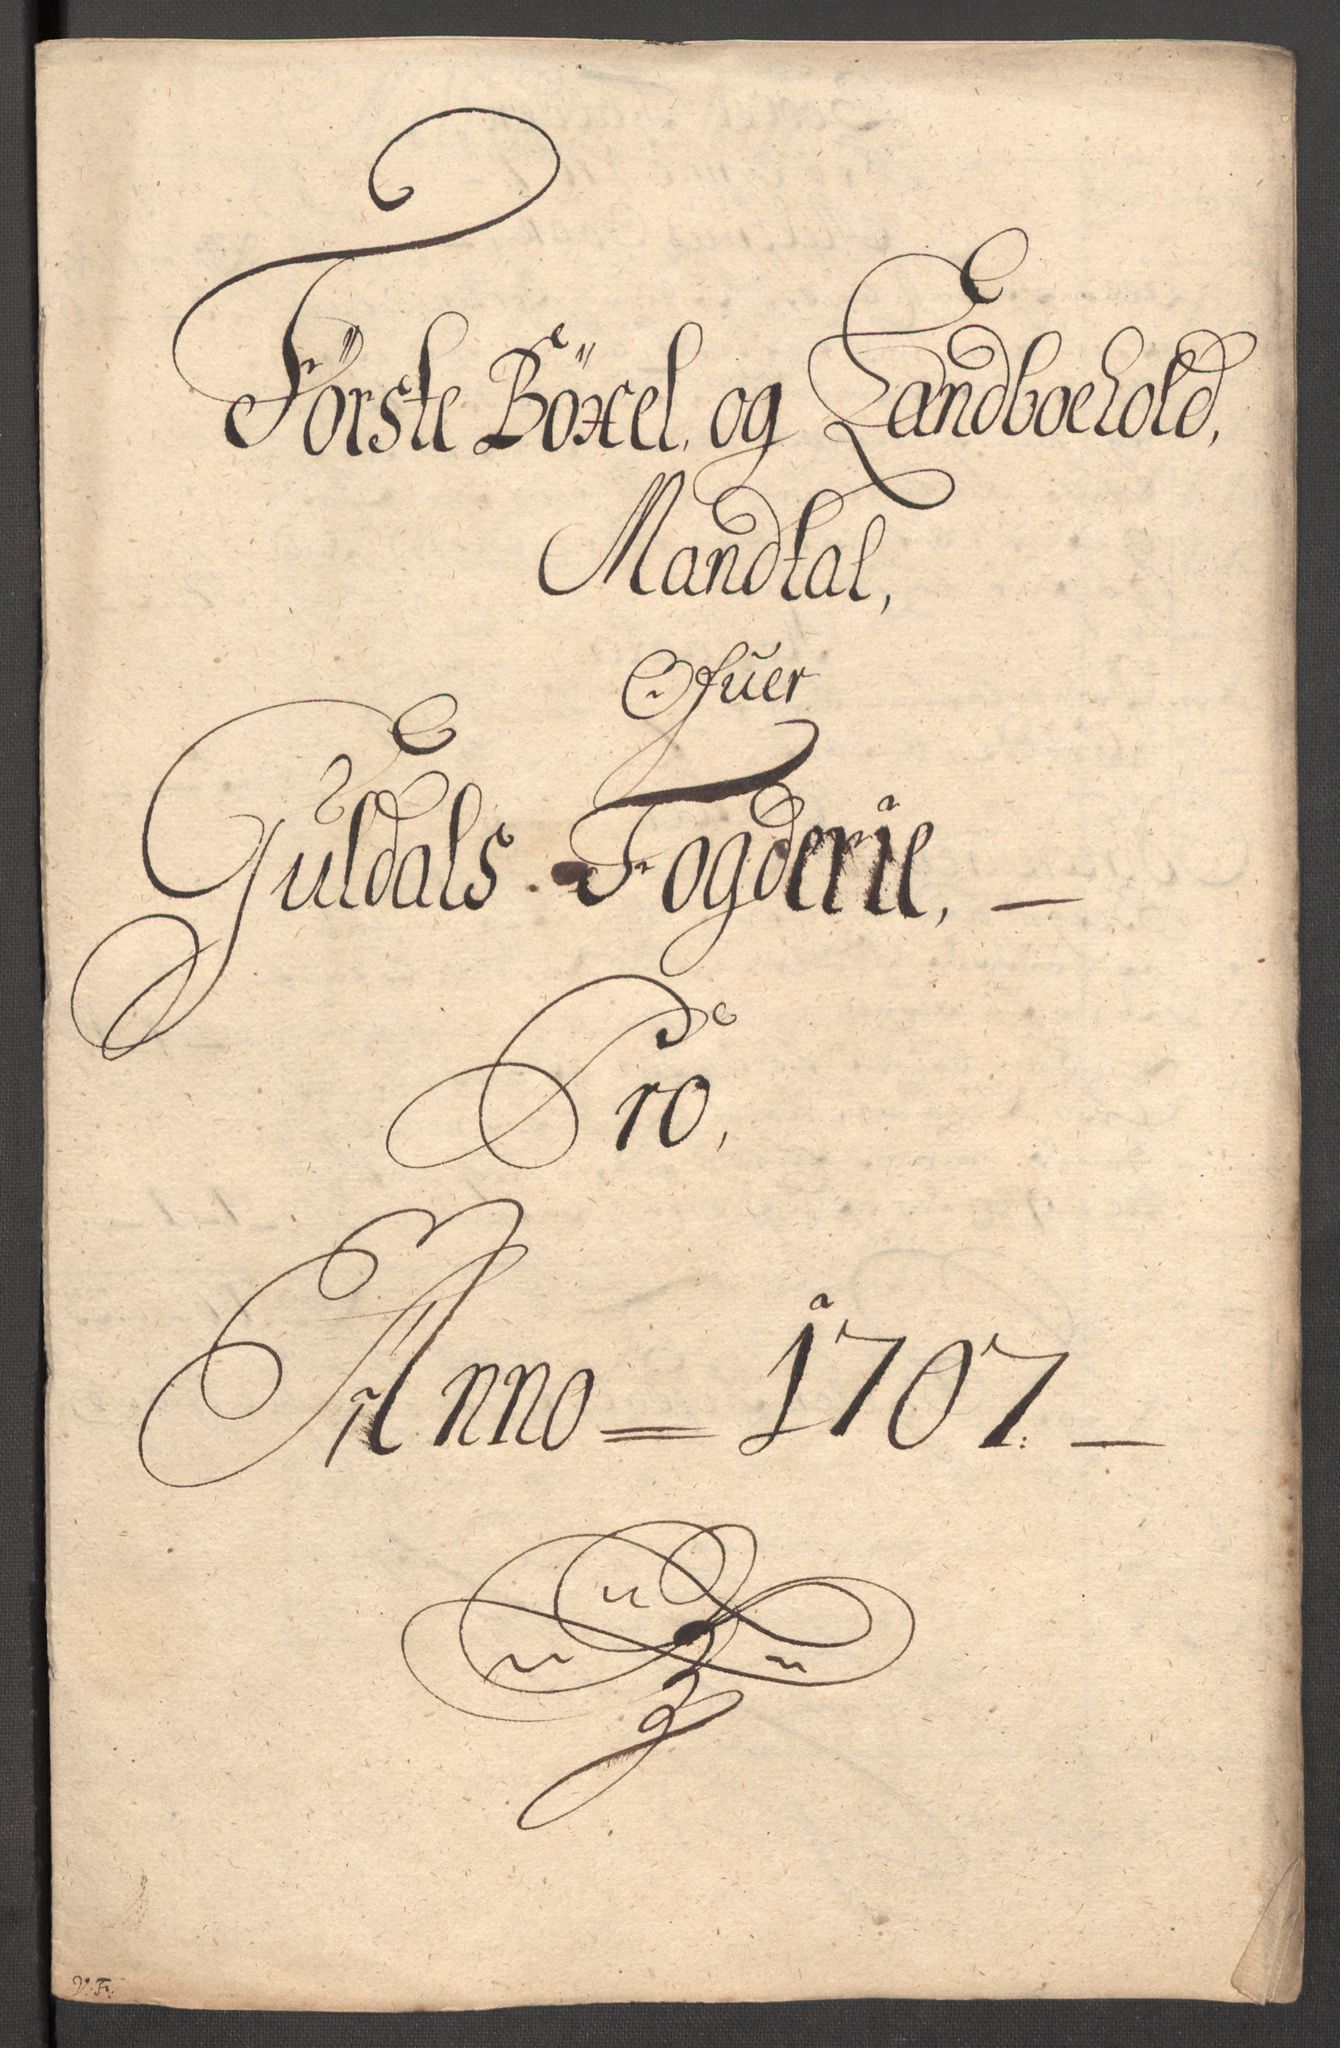 Förste Böxel, og Landbohold,
Mandtal,
Ofuer
Guldals Fogderie, —
Pro,
Anno = 1707. —
V. F.